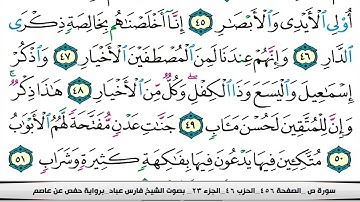 أُو۟لِى ٱلْأَيْدِى وَٱلْأَبْصَـٰرِ ٤٥ إِنَّآ أَخْلَصْنَـٰهُم بِخَالِصَةٍۢ ذِكْرَى
ٱلدَّارِ ٤٦ وَإِنَّهُمْ عِندَنَا لَمِنَ ٱلْمُصْطَفَيْنَ ٱلْأَخْيَارِ ٤٧ وَٱذْكُرْ
إِسْمَـٰعِيلَ وَٱلْيَسَعَ وَذَا ٱلْكِفْلِ ۖ وَكُلٌّۭ مِّنَ ٱلْأَخْيَارِ ٤٨ هَـٰذَا ذِكْرٌۭ ۚ
وَإِنَّ لِلْمُتَّقِينَ لَحُسْنَ مَـَٔابٍۢ ٤٩ جَنَّـٰتِ عَدْنٍۢ مُّفَتَّحَةًۭ لَّهُمُ ٱلْأَبْوَٰبُ
٥٠ مُتَّكِـِٔينَ فِيهَا يَدْعُونَ فِيهَا بِفَـٰكِهَةٍۢ كَثِيرَةٍۢ وَشَرَابٍۢ ٥١
سورة ص _الصفحة ٤٥٦_الحزب ٤٦_الجزء ٢٣_ بصوت الشيخ فارس عباد_برواية حفص عن عاصم